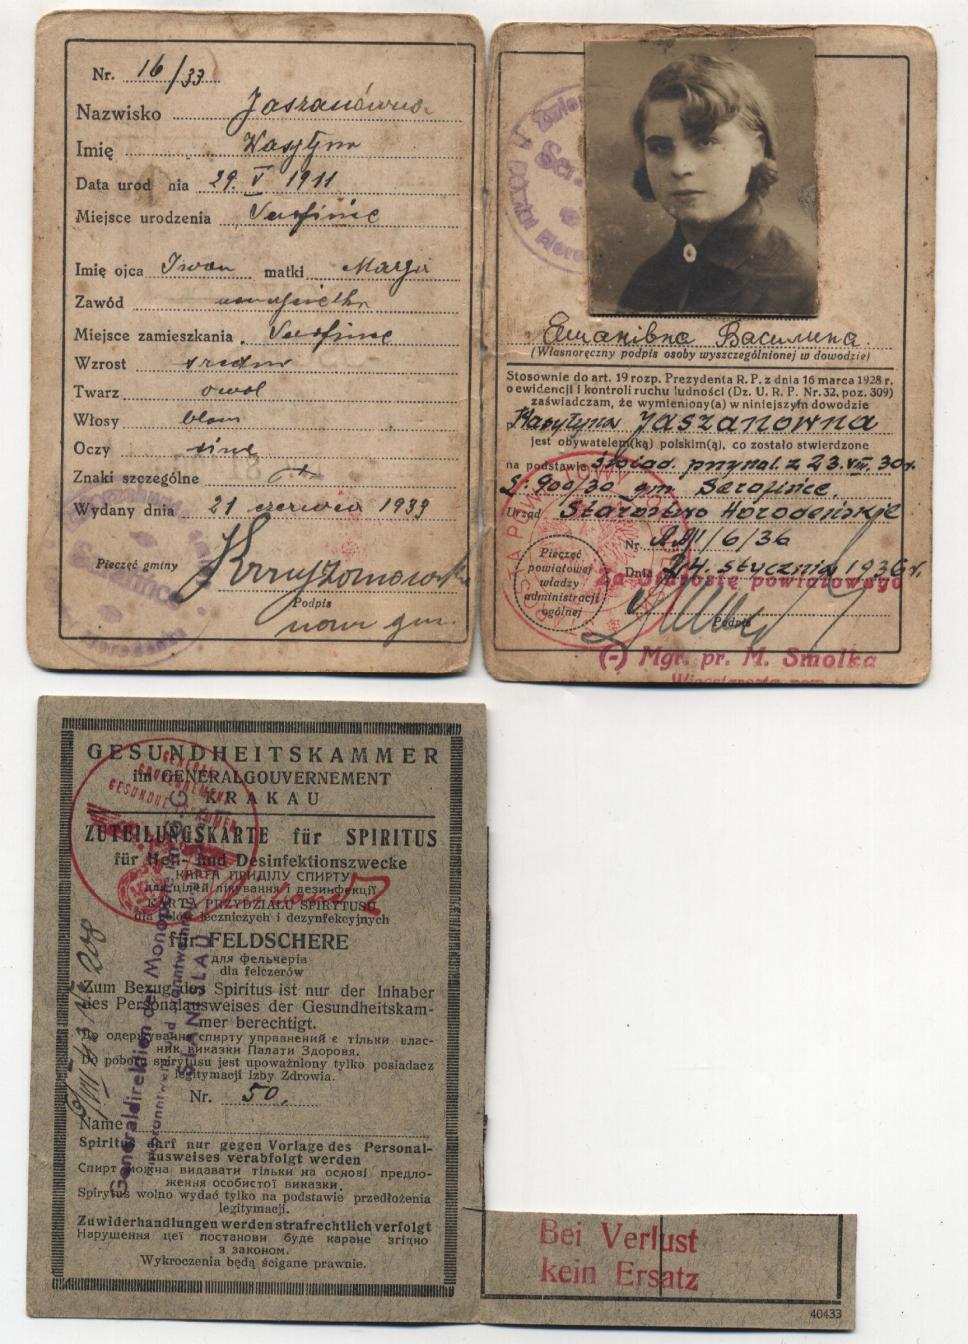 Nr. 16/33
Nazwisko Jaszanówna
Imię Wasylyna
Data urod nia 29. V 1911
Miejsce urodzenia Serafińce
Imię ojca Iwan matki Marja
Zawód
Miejsce zamieszkania Serafińce
Wzrost średni
Twarz owal
Włosy blon
Oczy siwe
Znaki szczególne
Wydany dnia 21 czerwca 1933
Pieczęć gminy
Podpis
Ешанівна Василина.
(Własnoręczny podpis osoby wyszczególnionej w dowodzie)
Stosownie do art. 19 rozp. Prezydenta R. P. z dnia 16 marca 1928 r.
o ewidencji i kontroli ruchu ludności (Dz. U. R. P. Nr. 32, poz. 309)
zaświadczam, że wymieniony(a) w niniejszym dowodzie
Wasylyna JASZANOWNA
jest obywatelem(ką) polskim(ą), co zostało stwierdzone
na podstawie świad. przynal. z 23.VIII.30r.
L: 900/30 gm. Serafińce.
Urząd Starostwo Horodeńskie
Nr /6/36
Dnia 24. stycznia 1936 r.
Za Starostę powiatowego
Pieczęć
powiatowej
władzy
administracji
ogólnej
Podpis
(-) Mgr. pr. M. Smolka
Wicestarosta
GESUNDHEITSKAMMER
im GENERALGOUVERNEMENT
KRAKAU
ZUTEILUNGSKARTE für SPIRITUS
für Heil- und Desinfektionszwecke
КАРТА ПРИДІЛУ СПИРТУ
для цілей лікування і дезинфекції
KARTA PRZYDZIAŁU SPIRYTUSU
dla celów leczniczych i dezynfekcyjnych
für FELDSCHERE
для фельчерів
dla felczerów
Zum Bezug des Spiritus ist nur der Inhaber
des Personalausweises der Gesundheitskam-
mer berechtigt.
До одержування спирту управнений є тільки влас-
ник виказки Палати Здоровя.
Do poboru spirytusu jest upoważniony tylko posiadacz
legitymacji Izby Zdrowia.
Nr. 50.
Name
Spiritus darf nur gegen Vorlage des Personal-
ausweises verabfolgt werden
Спирт можна видавати тільки на основі предло-
ження особистої виказки.
Spirytus wolno wydać tylko na podstawie przedłożenia
legitymacji.
Zuwiderhandlungen werden strafrechtlich verfolgt
Нарушення цеї постанови буде каране згідно
з законом.
Wykroczenia będą ścigane prawnie.
Generaldirektion der Monopole
STANISLAU
Bei Verlust
kein Ersatz
40433